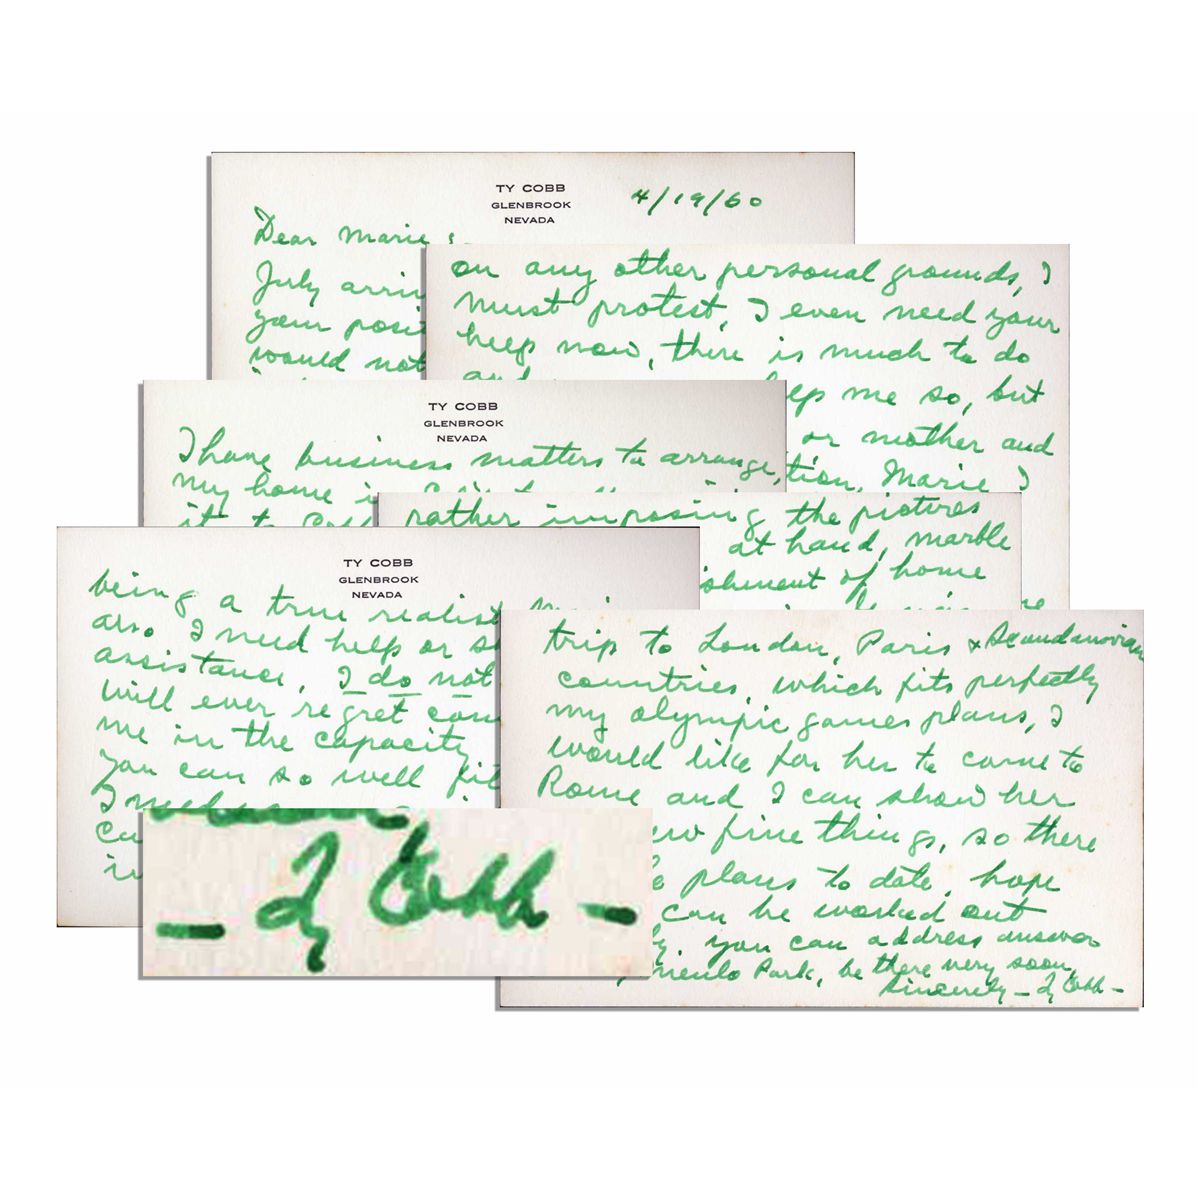 TY COBB
GLENBROOK
NEVADA
4/19/60
Dear Marie :-
July
your
would not
on any other personal grounds, I
must protest, I even need your
help now, there is much to do
me so, but
or mother and
Marie I
TY COBB
GLENBROOK
NEVADA
I have business matters to arrange,
my home
it to
rather imposing the pictures
at hand, marble
of home
TY COBB
GLENBROOK
NEVADA
being a true realist
also I need help or
assistance, I do not
will ever regret
me in the capacity
you can so well
trip to London, Paris & Scandanavian
countries, which fits perfectly
my olympic games plans, I
would like for her to come to
Rome and I can show her
fine things, so there
plans to date, hope
can be worked out
you can address answer
Menlo Park, be there very soon,
Sincerely – Ty Cobb –
– Ty Cobb –